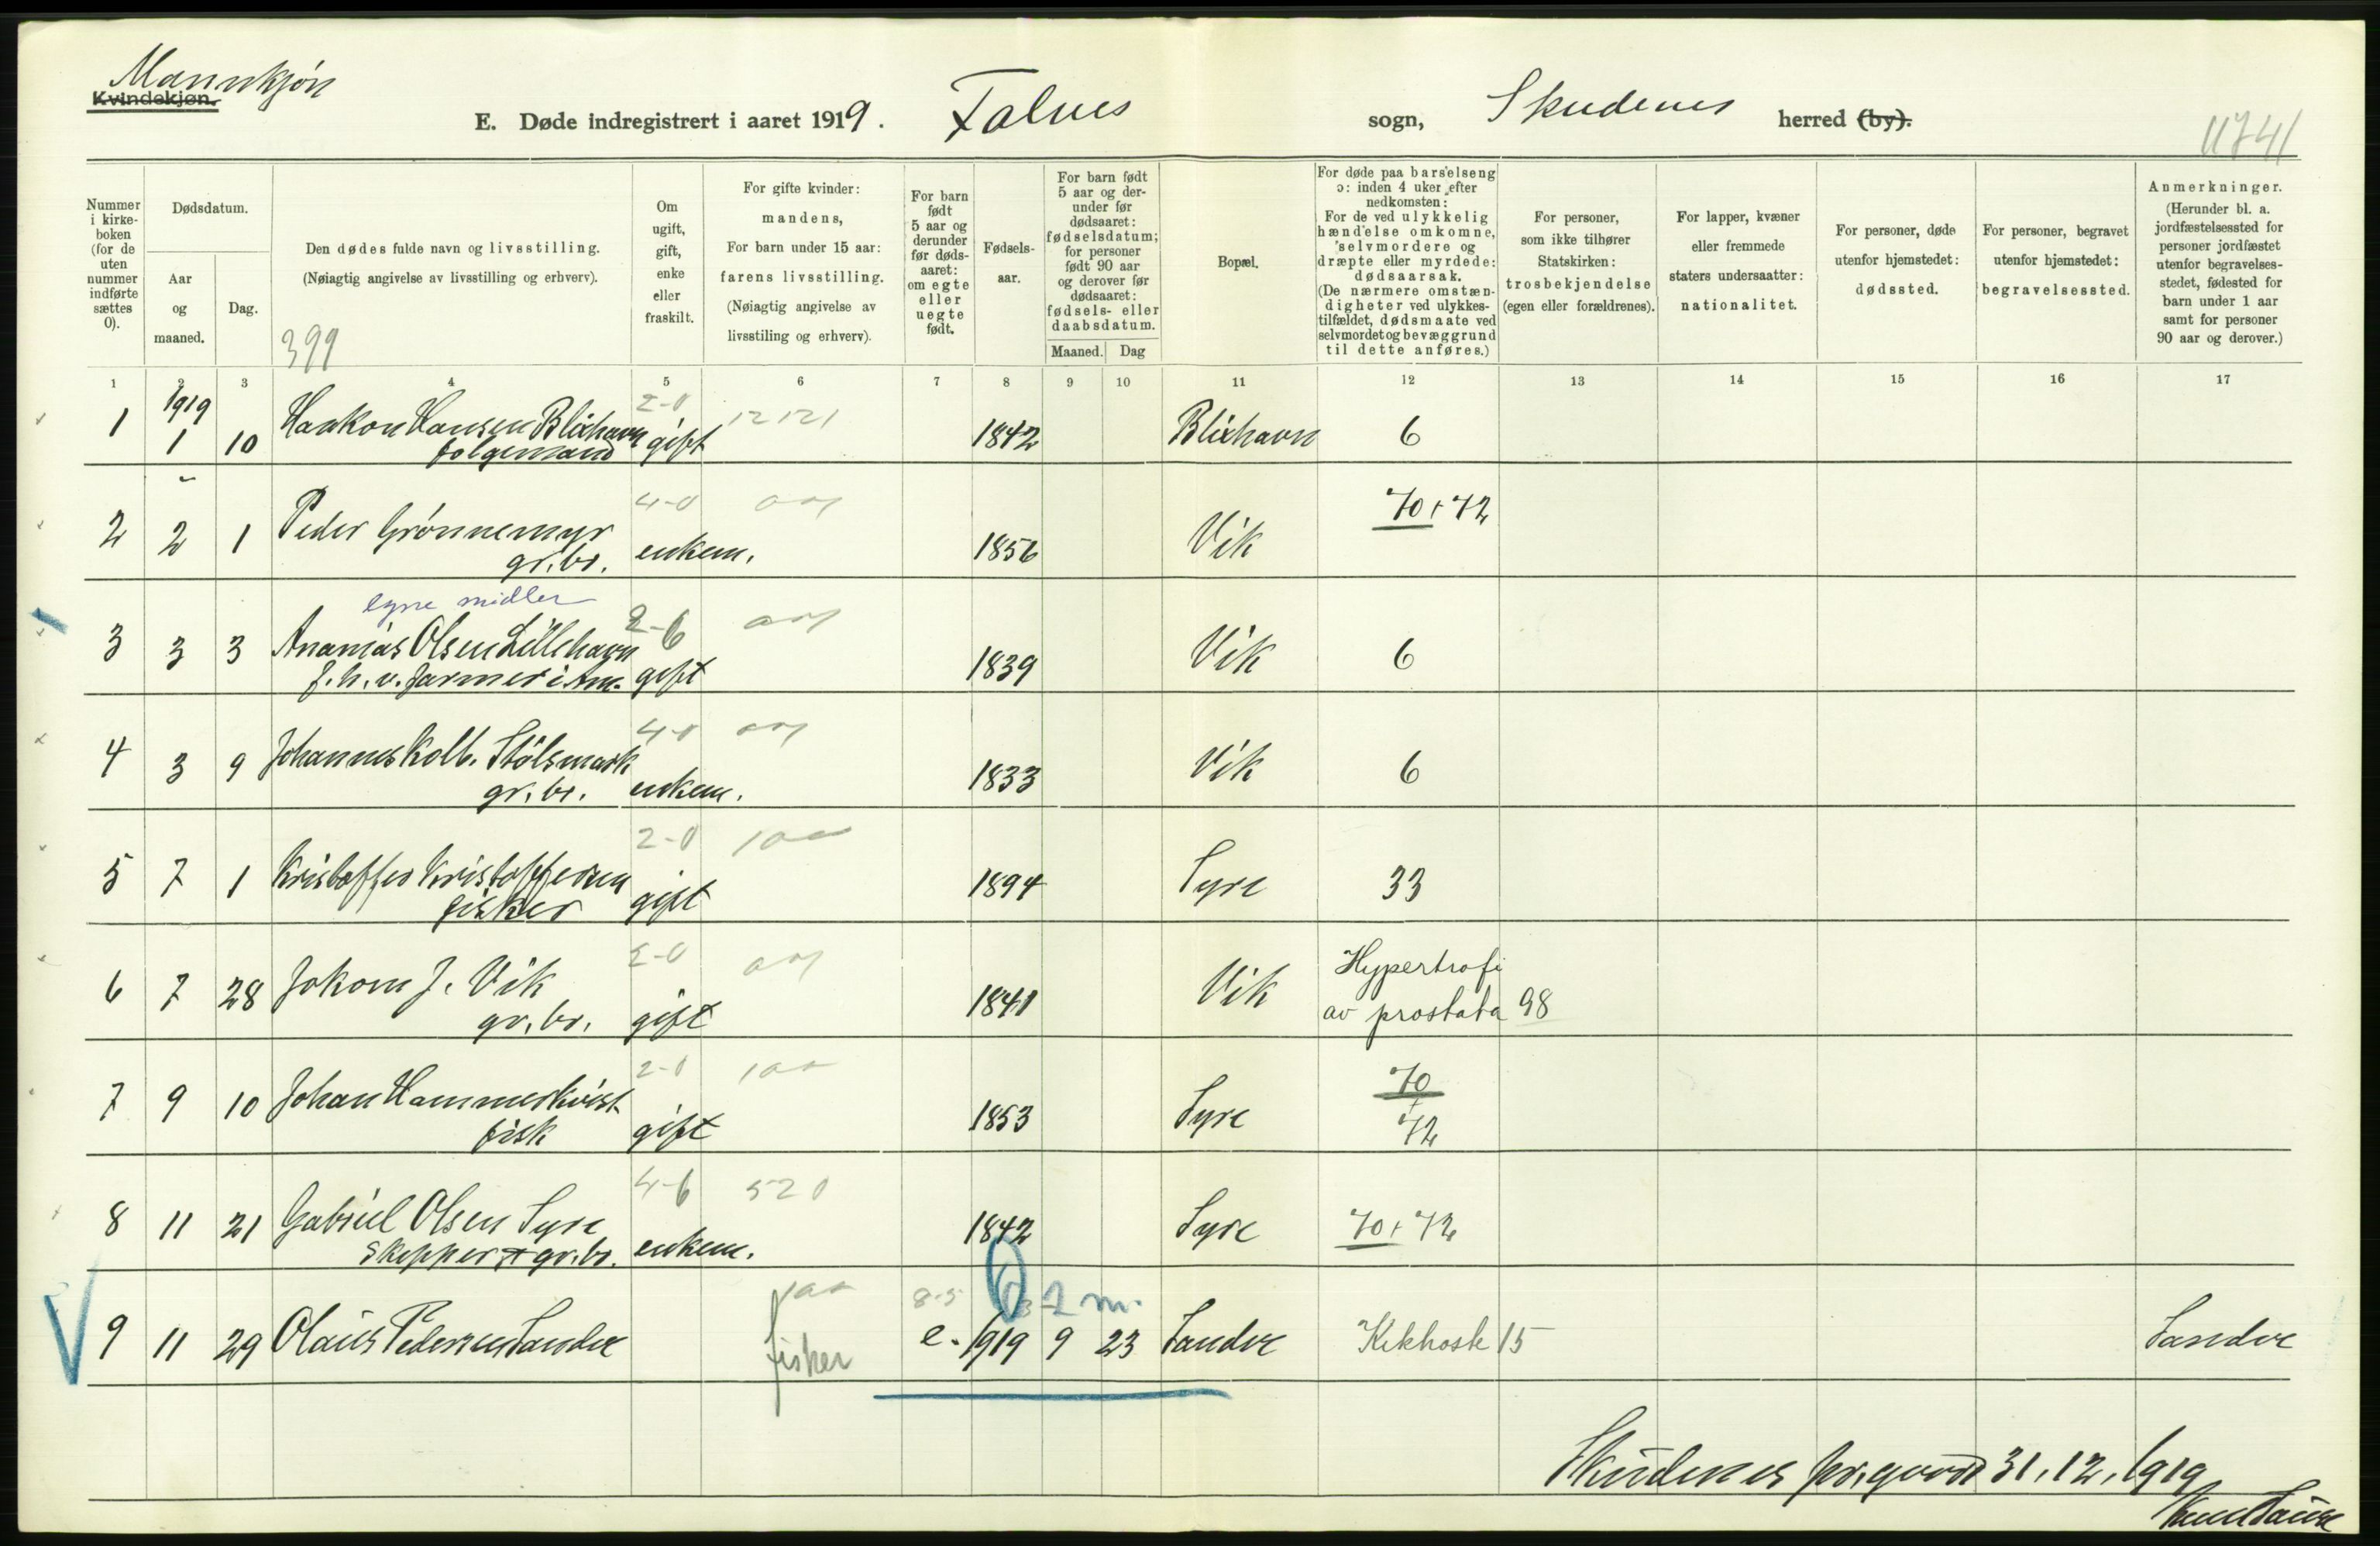 Mannkjøn
Kvindekjøn.
E. Døde indregistrert i aaret 1919. Falnes sogn, Skudenes herred (by).
11741
Nummer i kirkeboken (for de uten nummer indførte sættes 0).
Dødsdatum.
Aar og maaned.
Dag.
Den dødes fulde navn og livsstilling.
(Nøiagtig angivelse av livsstilling og erhverv).
399
Om ugift, gift, enke eller fraskilt.
For gifte kvinder: mandens, For barn under 15 aar: farens livsstilling. (Nøiagtig angivelse av livsstiling og erhverv).
For barn født 5 aar og derunder før dødsaaret: om egte eller uegte født.
Fødselsaar.
For barn født 5 aar og derunder før dødsaaret: fødselsdatum; for personer født 90 aar og derover før dødsaaret: fødsels- eller daabsdatum.
Maaned. Dag
Bopæl.
For døde paa barselseng ɔ: inden 4 uker efter nedkomsten: For de ved ulykkelig hændelse omkomne, selvmordere og dræpte eller myrdede: dødsaarsak. (De nærmere omstændigheter ved ulykkestilfældet, dødsmaate ved selvmordet og bevæggrund til dette anføres.)
For personer, som ikke tilhører Statskirken: trosbekjendelse (egen eller forældrenes).
For lapper, kvæner eller fremmede staters undersaatter: nationalitet.
For personer, døde utenfor hjemstedet: dødssted.
For personer, begravet utenfor hjemstedet: begravelsessted.
Anmerkninger. (Herunder bl. a. jordfæstelsessted for personer jordfæstet utenfor begravelsesstedet, fødested for barn under 1 aar samt for personer 90 aar og derover.)
1 2 3 4 5 6 7 8 9 10 11 12 13 14 15 16 17
1919 2-0 12121
1 1 10 Haakon Hansen Blixhavn gift 1842 Blixhavn 6
folgemand
4-0
2 2 1 Peder Grønnemyr enkem. 1856 Vik 70+72
gr.br.
egne midler
2-6
3 3 3 Ananias Olsen Lillehavn gift 1839 Vik 6
f.h.v. farmer i Am.
4-0
4 3 9 Johannes Kolb. Stölsmark enkem. 1833 Vik 6
gr.br.
2-0
5 7 1 Kristoffer Kristoffersen gift 1894 Syre 33
fisker
2-0
6 7 28 Jakom J. Vik gift 1841 Vik Hypertrofi av prostata 98
gr.br.
2-0
7 9 10 Johan Hammerkvist gift 1853 Syre 70 + 72
fisk
4-6 520
8 11 21 Gabriel Olsen Syre enkem. 1842 Syre 70+72
skipper & gr.br.
8-5 2 m.
9 11 29 Olaus Pedersen Sandve fisker e. 1919 9 23 Sandve Kikhoste 15 Sandve
Skudenes pr.gaard 31.12.1919